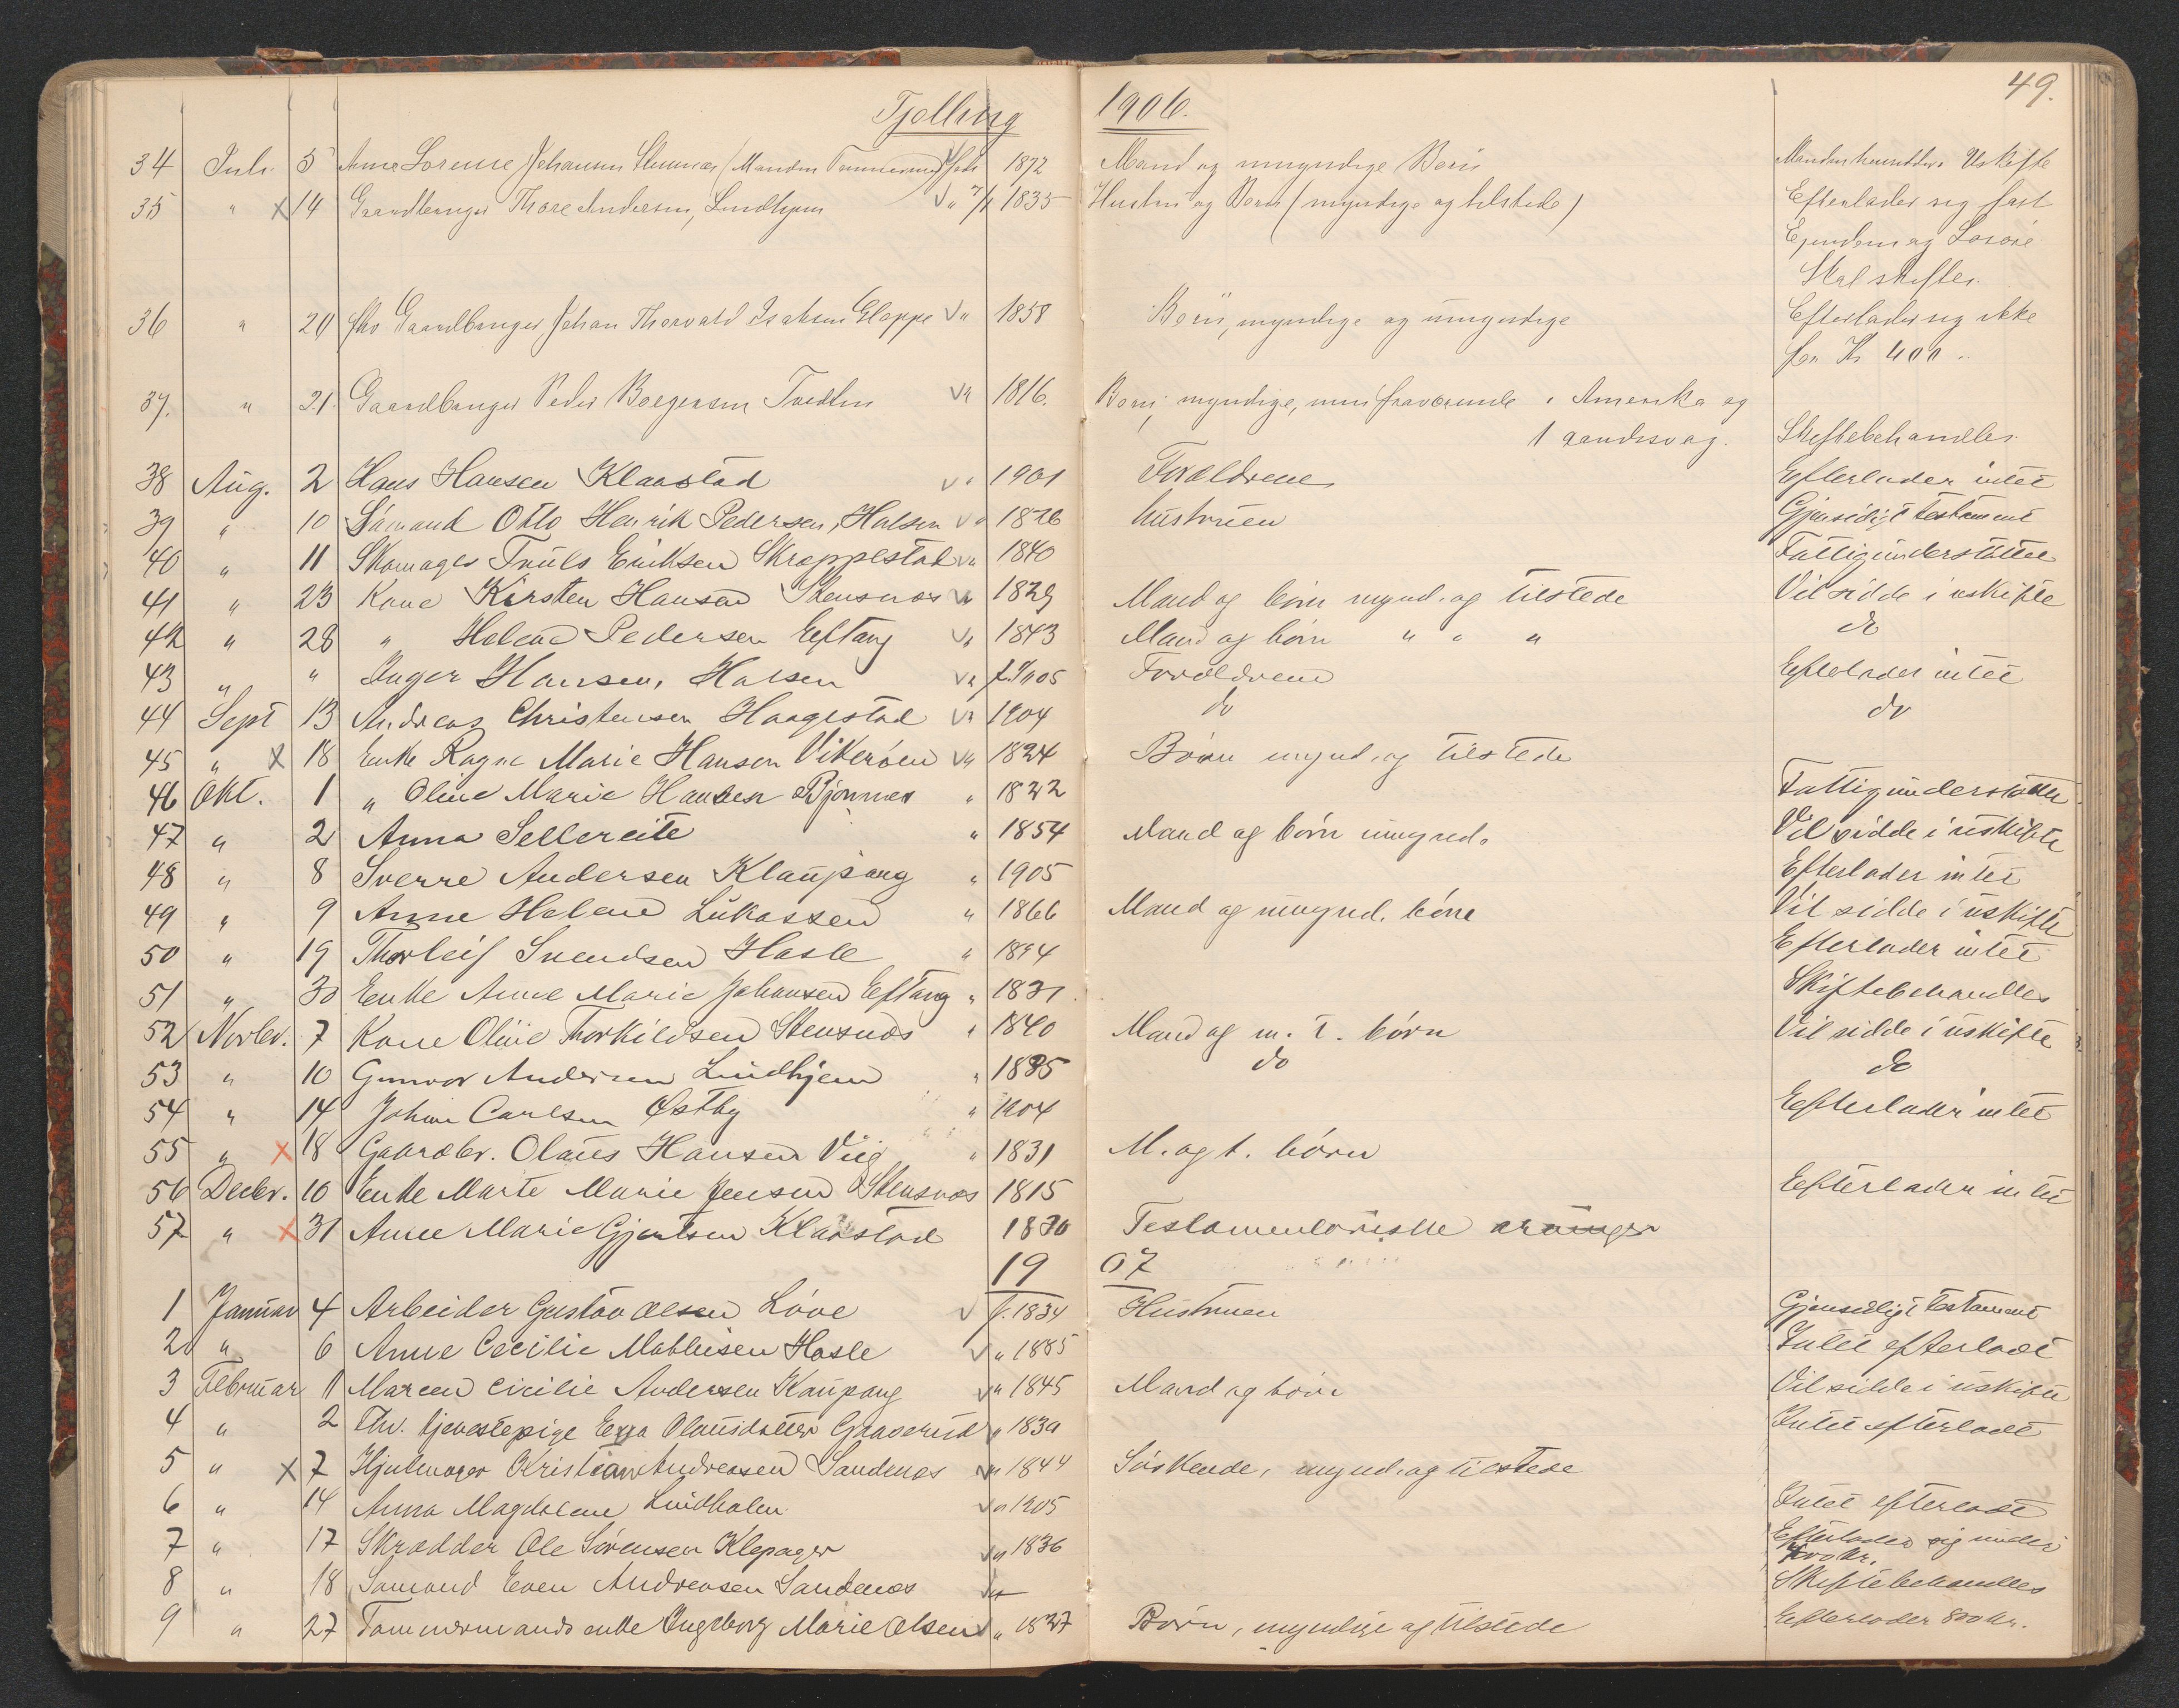 49.
Tjølling 1906.
34 Juli 5 Anne Lorense Johansen (Manden Tømmermand) født 1872 Mand og umyndige Børn Manden hensidder i Uskifte
35 " x 14 Gaardbruger Thore Andersen, Lindhjem √ " 7/1 1835 Hustru og Børn (myndige og tilstede) Efterlader sig fast
Ejendom og Løsøre
Skal skiftes.
36 " 20 fhv Gaardbruger Johan Thorvald Isaksen Gloppe √ " 1858 Børn, myndige og umyndige Efterlader sig ikke
for Kr 400.
37. " 21. Gaardbruger Peder Borgersen Tvedten √ " 1816. Børn, myndige, men fraværende i Amerika og
1 aandssvag. Skiftebehandles.
38 Aug. 2 Hans Hansen Klaastad √ " 1901 Forældrene Efterlader intet
39 " 10 Sømand Otto Henrik Pedersen, Halsen √ " 1826 hustruen Gjensidigt testament
40 " 11 Skomager Truls Eriksen Skreppestad √ " 1840 Fattigunderstøttet
41 " 23 Kone Kirsten Hansen Stensnæs √ " 1829 Mand og børn mynd. og tilstede Vil sidde i uskifte
42 " 28 " Helene Pedersen Eftang √ " 1843 Mand og børn " " " do
43 " " Inger Hansen, Halsen √ " f. 1905 Forældrene Efterlader intet
44 Sept 13 Andreas Christensen Haagestad √ " 1904 do do
45 " x 18 Enke Ragne Marie Hansen Vikerøen √ " 1824 Børn mynd. og tilstede
46 Okt. 1 " Oline Marie Hansen Bjønnes " 1822 Fattigunderstøttet
47 " 2 Anna Sellereite " 1854 Mand og børn umynd. Vil sidde i uskifte
48 " 8 Sverre Andersen Klaupang " 1905 Efterlader intet
49 " 9 Anne Helene Lukassen " 1866 Mand og umynd. børn Vil sidde i uskifte
50 " 19 Thorleif Svendsen Hasle " 1894 Efterlader intet
51 " 30 Enke Anne Marie Johansen Eftang " 1831. Skiftebehandles
52 Novbr. 7 Kone Olive Thorkildsen Stensnæs " 1840 Mand og m. t. børn Vil sidde i uskifte
53 " 10 Gunvor Andersen Lindhjem " 1885 do do
54 " 14 Johan Carlsen Østby " 1904 Efterlader intet
55 " x 18 Gaardbr. Olaus Hansen Viig " 1831 M. og t. børn
56 Decbr. 10 Enke Marte Marie Jensen Stensnæs 1815 Efterlader intet
57 " x 31 Anne Marie Gjertsen Klaastad 1830 Testamentariske arvinger
1907
1 Januar 4 Arbeider Gustav Olsen Løve √ f. 1834 Hustruen Gjensidigt testament
2 " 6 Anne Cecilie Mathisen Hasle √ " 1885 Intet efterladt
3 Februar 1 Maren Cicilie Andersen Kaupang √ " 1845 Mand og børn Vil sidde i uskifte
4 " 2 Fhv. tjenestepige Olausdatter Gaaserud " 1839 Intet efterladt
5 " x 7 Hjulmager Kristian Andreasen Sandenæs √ " 1844 Søskende, mynd. og tilstede
6 " 14 Anna Magdalene Lindholm √ " 1905 Intet efterladt
7 " 17 Skrædder Ole Sørensen Klepager √ " 1836 Efterlader sig under
400 kr.
8 " 18 Sømand Even Andreasen Sandenæs √ " Skiftebehandles
9 " 27 Tømmermands enke Ingeborg Marie Olsen √ " 1827 Børn, myndige og tilstede Efterlader 800 kr.